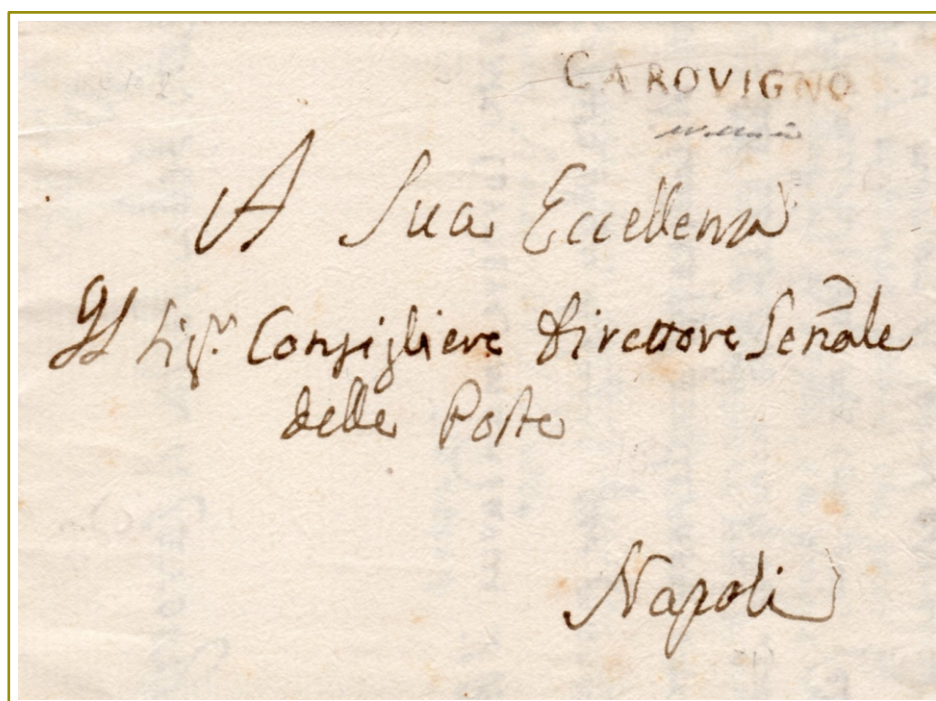 CAROVIGNO
A Sua Eccellenza
Il Sig.r Consigliere Direttore Genãle
delle Poste
Napoli